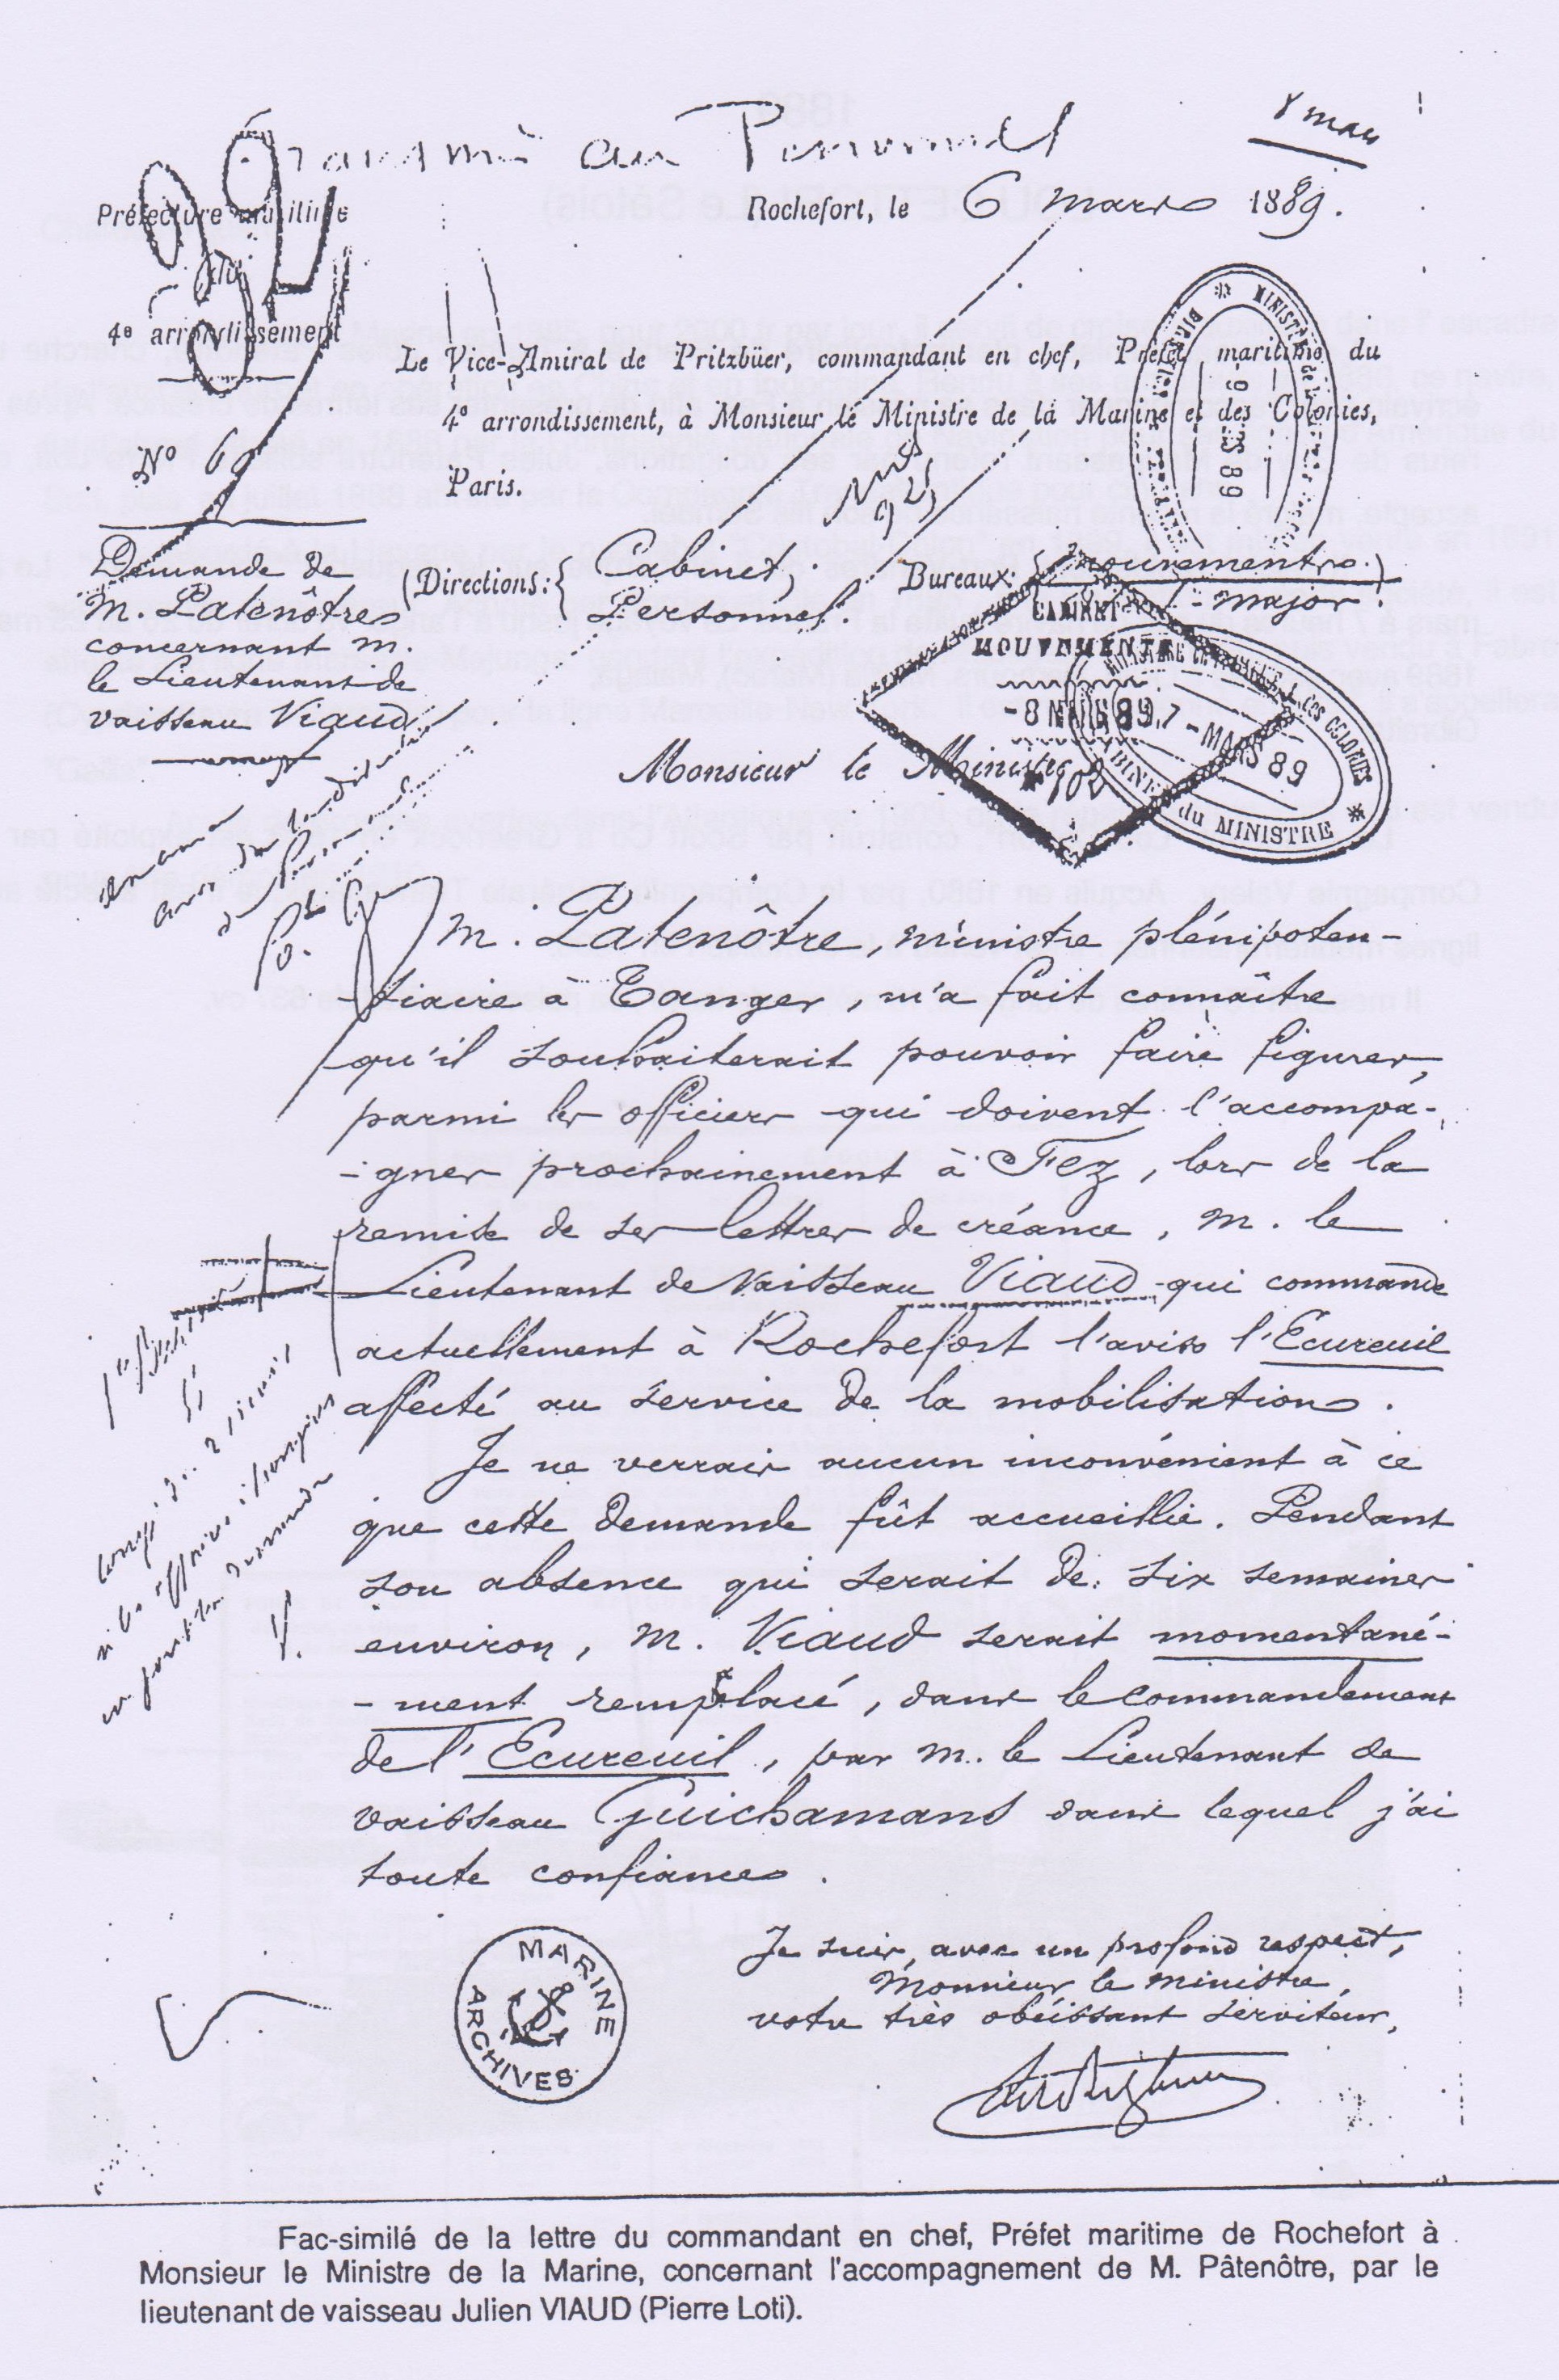 au Personnel
8 mars
Préfecture maritime
du
4e arrondissement
Rochefort, le 6 mars 1889.
Le Vice-Amiral de Pritzbüer, commandant en chef, Préfet maritime du
4e arrondissement, à Monsieur le Ministre de la Marine et des Colonies,
Paris.
No
Demande de
M. Patenôtre
concernant M.
le Lieutenant de
vaisseau Viaud
(Directions: { Cabinet,
Personnel.
Bureaux: { mouvements.)
major.
CABINET
MOUVEMENTS
-8 MARS 89
MINISTÈRE DE LA MARINE & des COLONIES
7-MARS 89
CABINET du MINISTRE
-9 MARS 89
Monsieur le Ministre
M. Patenôtre, ministre plénipoten-
-tiaire à Tanger, m'a fait connaître
qu'il souhaiterait pouvoir faire figurer,
parmi les officiers qui doivent l'accompa-
-gner prochainement à Fez, lors de la
remise de ses lettres de créance, M. le
Lieutenant de vaisseau Viaud qui commande
actuellement à Rochefort l'aviso l'Ecureuil
affecté au service de la mobilisation.
Je ne verrais aucun inconvénient à ce
que cette demande fût accueillie. Pendant
son absence qui serait de six semaines
environ, M. Viaud serait momentané-
-ment remplacé, dans le commandement
de l'Ecureuil, par M. le Lieutenant de
vaisseau Guichamans dans lequel j'ai
toute confiance.
Je suis, avec un profond respect,
Monsieur le ministre,
votre très obéissant serviteur,
MARINE
ARCHIVES
Fac-similé de la lettre du commandant en chef, Préfet maritime de Rochefort à
Monsieur le Ministre de la Marine, concernant l'accompagnement de M. Pâtenôtre, par le
lieutenant de vaisseau Julien VIAUD (Pierre Loti).